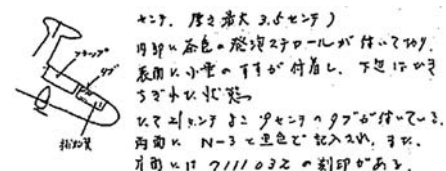 センチ、厚さ最大 3.5センチ)
内部に茶色の発泡スチロールが付いており、
表面に少量のすすが付着し、下辺はひき
ちぎれた状態
たて21センチ よこ 9センチのタブが付いている。
両面に N-3 と黒色で記入され、また、
片面には 7111032 の刻印がある。
フラップ
タブ